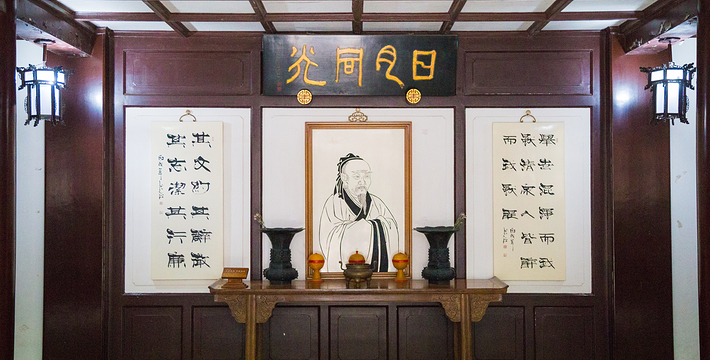 日月同光
舉世混濁而我
獨清衆人皆醉
而我獨醒
其文約其辭微
其志潔其行廉